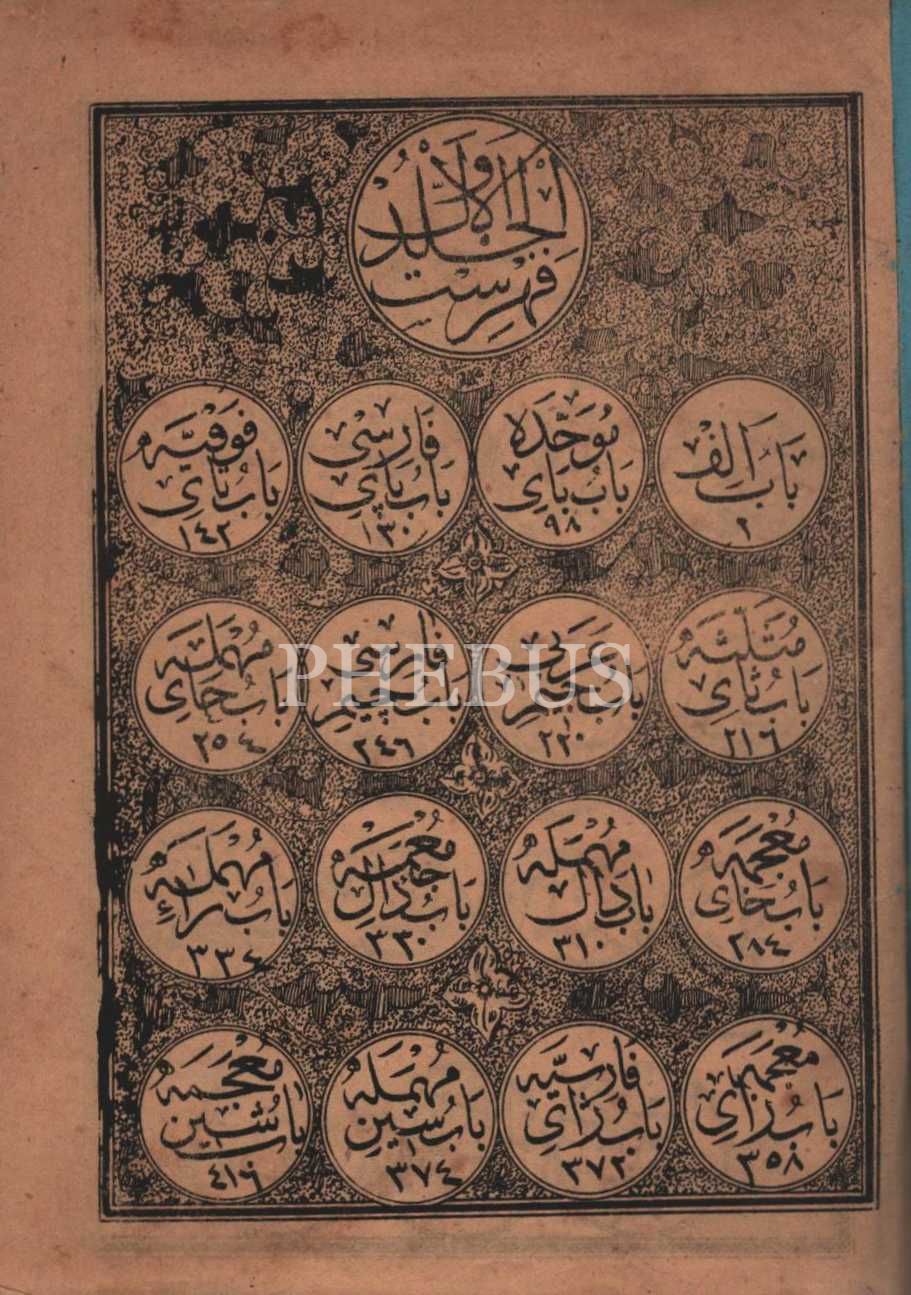 فهرست
الجلد الاول
باب الف
٢
باب باى
موحده
٩٨
باب پاى
فارسى
١٣٠
باب تاى
فوقيه
١٤٢
باب ثاى
مثلثه
٢١٦
باب جيم
عربى
٢٢٠
باب چيم
فارسى
٢٤٦
باب حاى
مهمله
٢٥٤
PHEBUS
باب خاى
معجمه
٢٨٤
باب دال
مهمله
٣١٠
باب ذال
معجمه
٣٣٠
باب راء
مهمله
٣٣٤
باب زاى
معجمه
٣٥٨
باب ژاى
فارسيه
٣٧٢
باب سين
مهمله
٣٧٤
باب شين
معجمه
٤١٦